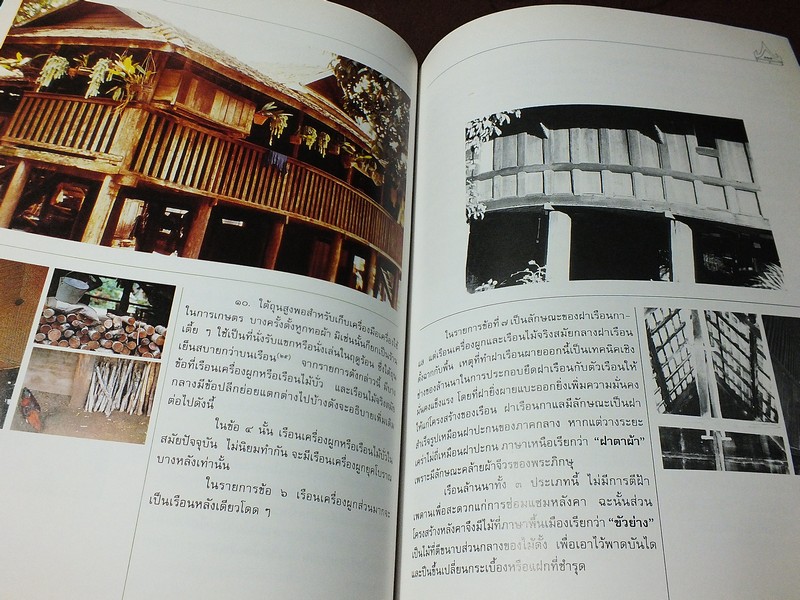 ๑๐. ใต้ถุนสูงพอสำหรับเก็บเครื่องมือเครื่องใช้
ในการเกษตร บางครั้งตั้งหูกทอผ้า มิเช่นนั้นก็ยกเป็นร้าน
เตี้ย ๆ ใช้เป็นที่นั่งรับแขกหรือนั่งเล่นในฤดูร้อน ซึ่งใต้ถุน
เย็นสบายกว่าบนเรือน จากรายการดังกล่าวนี้ มีบาง
ข้อที่เรือนเครื่องผูกหรือเรือนไม้บั่ว และเรือนไม้จริงสมัย
กลางมีข้อปลีกย่อยแตกต่างไปบ้างดังจะอธิบายเพิ่มเติม
ต่อไปดังนี้
ในข้อ ๔ นั้น เรือนเครื่องผูกหรือเรือนไม้บั่วใน
สมัยปัจจุบัน ไม่นิยมทำกัน จะมีเรือนเครื่องผูกยุคโบราณ
บางหลังเท่านั้น
ในรายการข้อ ๖ เรือนเครื่องผูกส่วนมากจะ
เป็นเรือนหลังเดียวโดด ๆ
ในรายการข้อที่ ๗ เป็นลักษณะของฝาเรือนกา-
แล แต่เรือนเครื่องผูกและเรือนไม้จริงสมัยกลางฝาเรือน
ตั้งฉากกับพื้น เหตุที่ทำฝาเรือนผายออกนี้เป็นเทคนิคเชิง
ช่างของล้านนาในการประกอบยึดฝาเรือนกับตัวเรือนให้
มั่นคงแข็งแรง โดยที่ฝายิ่งผายแบะออกยิ่งเพิ่มความมั่นคง
ให้แก่โครงสร้างของเรือน ฝาเรือนกาแลมีลักษณะเป็นฝา
สำเร็จรูปเหมือนฝาปะกนของภาคกลาง หากแต่วางระยะ
เคร่าไม่ถี่เหมือนฝาปะกน ภาษาเหนือเรียกว่า “ฝาตาผ้า”
เพราะมีลักษณะคล้ายผ้าจีวรของพระภิกษุ
เรือนล้านนาทั้ง ๓ ประเภทนี้ ไม่มีการตีฝ้า
เพดานเพื่อสะดวกแก่การซ่อมแซมหลังคา ฉะนั้นส่วน
โครงสร้างหลังคาจึงมีไม้ที่ภาษาพื้นเมืองเรียกว่า “ขัวย่าง”
เป็นไม้ที่ตีขนาบส่วนกลางของไม้ตั้ง เพื่อเอาไว้พาดบันได
และปีนขึ้นเปลี่ยนกระเบื้องหรือแฝกที่ชำรุด